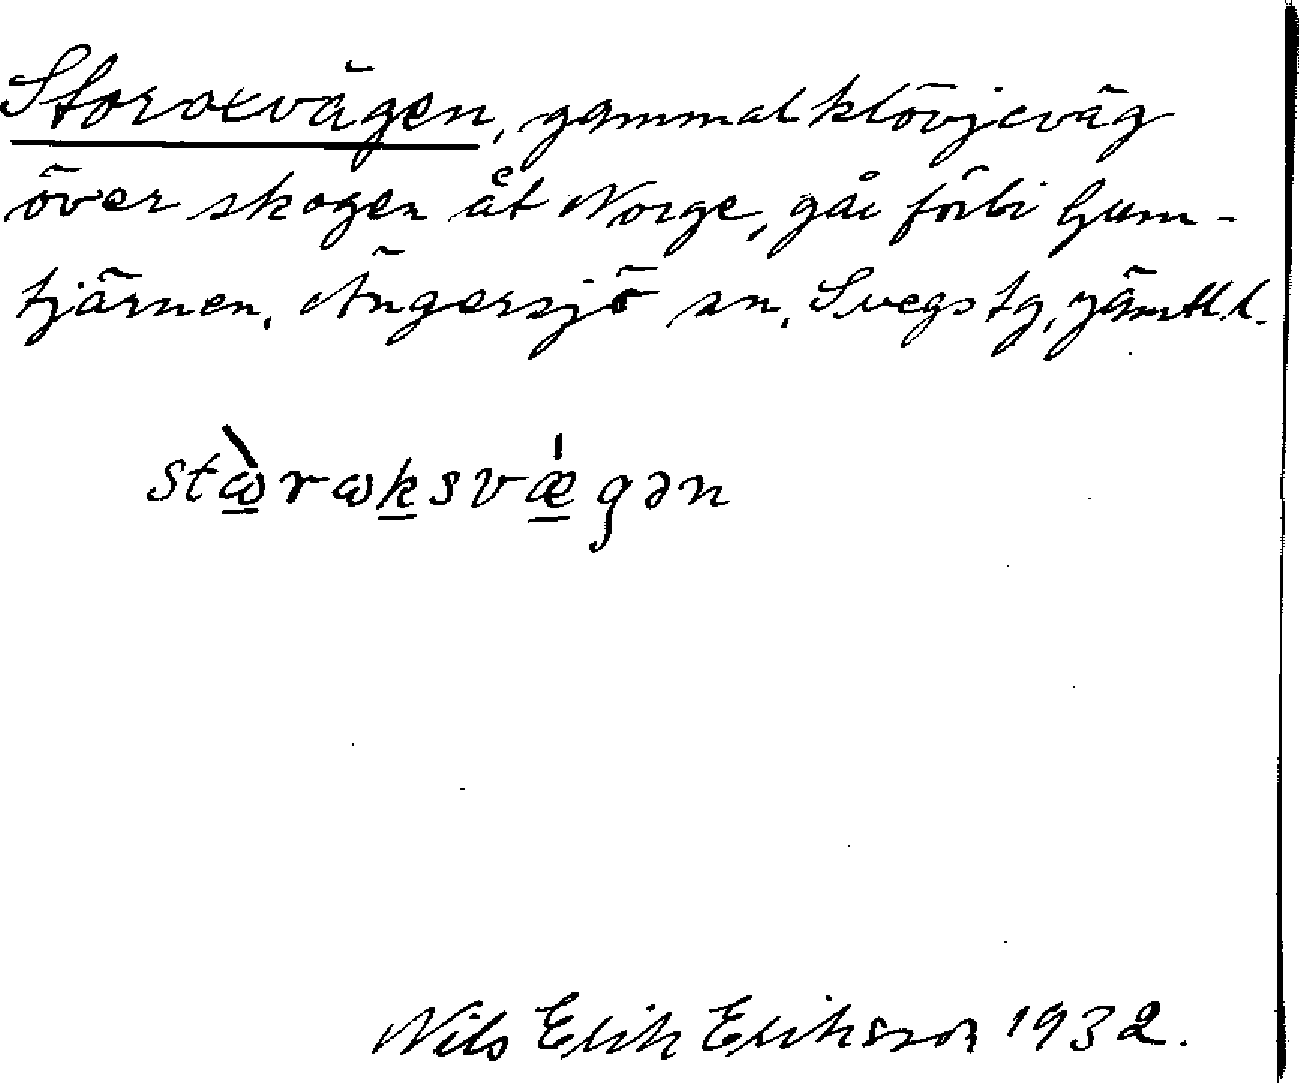 Storoxvägen, gammal klövjeväg
över skogen åt Norge, går förbi Gum-
tjärnen. Ängersjö sn, Svegs tg, Jämtl.l.
stɷ̀rɷksvǽgən
Nils Erik Eriksson 1932.